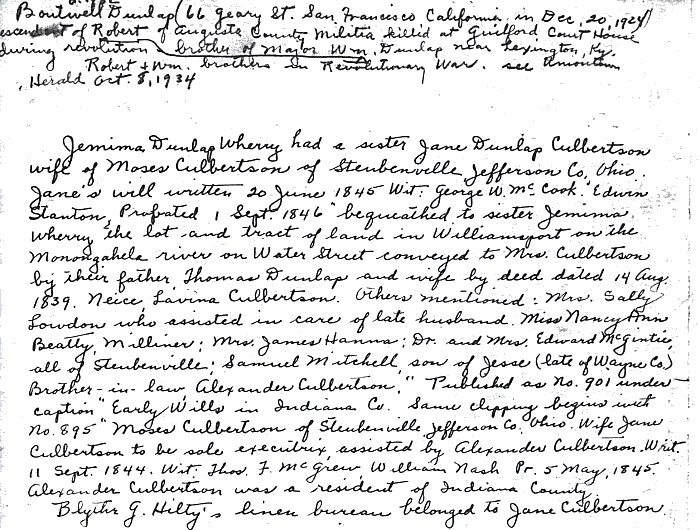 Boutwell Dunlap (66 Geary St. San Francisco, California, in Dec. 20, 1924)
escendent of Robert of Augusta County Militia killid at Guilford Court House
during revolution brother of Major Wm. Dunlap near Lexington, Ky.
Robert & Wm. brothers in Revolutionary War. see Uniontown
Herald Oct. 8, 1934
Jemima Dunlap Wherry had a sister Jane Dunlap Culbertson
wife of Moses Culbertson of Steubenville Jefferson Co, Ohio.
Jane's will written 20 June 1845 Wit: George W. McCook. Edwin
Stanton, Probated 1 Sept. 1846 "bequeathed to sister Jemima
Wherry the lot and tract of land in Williamsport on the
Monongahela river on Water Street conveyed to Mrs. Culbertson
by their father Thomas Dunlap and wife by deed dated 14 Aug.
1839. Neice Lavina Culbertson. Others mentioned: Mrs. Sally
Lowdon who assisted in care of late husband. Miss Nancy Ann
Beatty, Milliner; Mrs. James Hanna; Dr. and Mrs. Edward McGintie,
all of Steubenville; Samuel Mitchell, son of Jesse (late of Wayne Co)
Brother-in-law Alexander Culbertson." Published as No. 901 under
caption "Early Wills in Indiana Co. Same clipping begins with
No. 895 "Moses Culbertson of Steubenville Jefferson Co. Ohio. Wife Jane
Culbertson to be sole executrix, assisted by Alexander Culbertson. Writ.
11 Sept. 1844. Wit. Thos. F. McGrew, William Nash Pr. 5 May, 1845.
Alexander Culbertson was a resident of Indiana County.
Blythe G. Hilty's linen bureau belonged to Jane Culbertson.